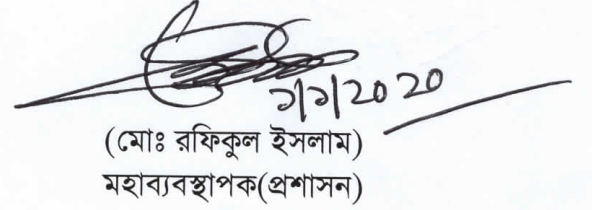 ১/১/2020
(মোঃ রফিকুল ইসলাম)
মহাব্যবস্থাপক(প্রশাসন)